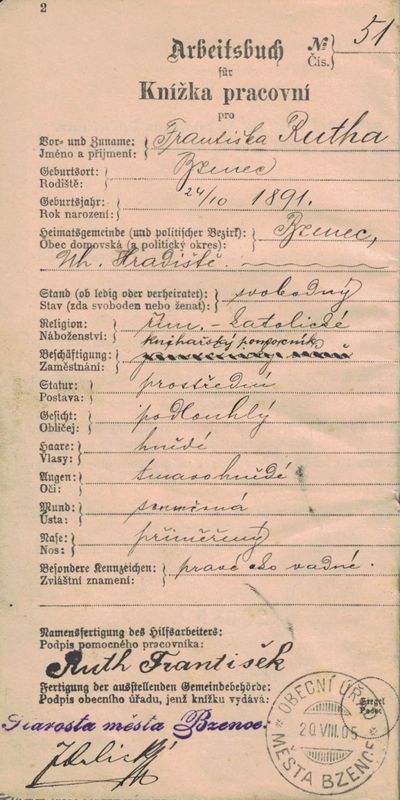 2
Arbeitsbuch № 51
für Čís.
Knížka pracovní
pro
Vor- und Zuname: Františka Rutha
Jméno a příjmení:
Geburtsort: Bzenec
Rodiště:
Geburtsjahr: 24/10 1891.
Rok narození:
Heimatsgemeinde (und politischer Bezirk): Bzenec,
Obec domovská (a politický okres):
Uh. Hradiště.
Stand (ob ledig oder verheiratet): svobodný
Stav (zda svoboden nebo ženat):
Religion: řím.-katolické
Náboženství: knihařský pomocník
Beschäftigung:
Zaměstnání:
Statur: prostřední
Postava:
Gesicht: podlouhlý
Obličej:
Haare: hnědé
Vlasy:
Augen: tmavohnědé
Oči:
Mund: souměrná
Ústa:
Nase: přiměřený
Nos:
Besondere Kennzeichen: pravé oko vadné.
Zvláštní znamení:
Namensfertigung des Hilfsarbeiters:
Podpis pomocného pracovníka:
Ruth František
Fertigung der ausstellenden Gemeindebehörde:
Podpis obecního úřadu, jenž knížku vydává:
Siegel
Pečeť
Starosta města Bzence:
OBECNÍ ÚŘAD
20.VIII.05
MĚSTA BZENCE